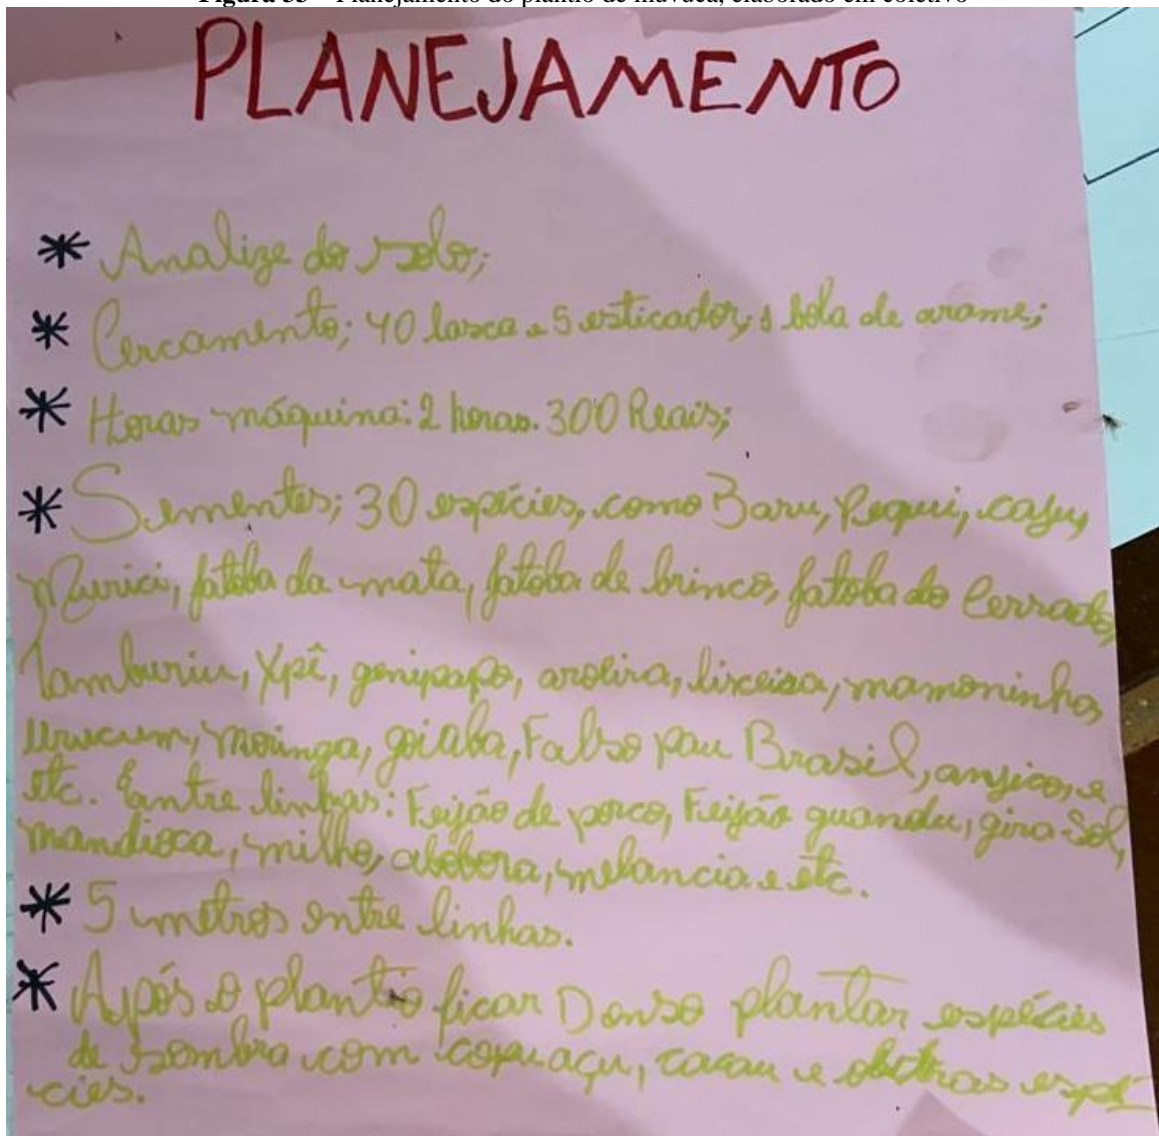 Figura 33 – Planejamento do plantio de muvuca, elaborado em coletivo
PLANEJAMENTO
* Analize do solo;
* Cercamento; 40 lasca e 5 esticador; 1 bola de arame;
* Horas máquina: 2 horas. 300 Reais;
* Sementes; 30 espécies, como Baru, Pequi, caju,
Murici, jatoba da mata, jatoba de brinco, jatoba do Cerrado,
Tamburiu, Ypê, genipapo, aroeira, lixeira, mamoninha,
Urucum, moringa, goiaba, Falso pau Brasil, anjico, e
etc. Entre linhas: Feijão de porco, Feijão guandu, gira Sol,
mandioca, milho, abobora, melancia e etc.
* 5 metros entre linhas.
* Após o plantio ficar Denso plantar espécies
de sombra com copuaçu, cacau e outras espé
cies.